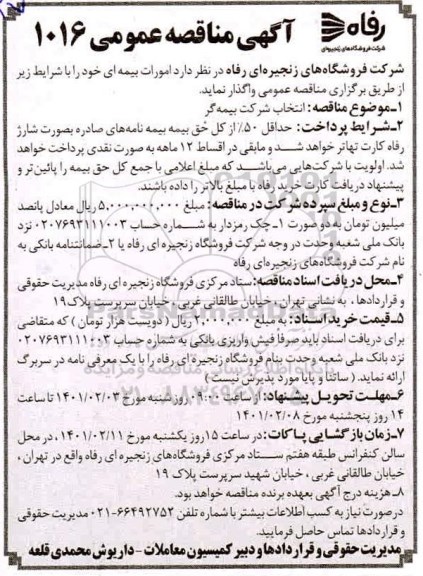 رفاه
شرکت فروشگاه‌های زنجیره‌ای
آگهی مناقصه عمومی ۱۰۱۶
شرکت فروشگاه‌های زنجیره‌ای رفاه در نظر دارد امورات بیمه ای خود را با شرایط زیر
از طریق برگزاری مناقصه عمومی واگذار نماید.
۱-موضوع مناقصه: انتخاب شرکت بیمه‌گر
۲-شرایط پرداخت: حداقل ۵۰٪ از کل حق بیمه بیمه نامه‌های صادره بصورت شارژ
رفاه کارت تهاتر خواهد شد و مابقی در اقساط ۱۲ ماهه به صورت نقدی پرداخت خواهد
شد. اولویت با شرکت‌هایی می‌باشد که مبلغ اعلامی با جمع کل حق بیمه را پائین‌تر و
پیشنهاد دریافت کارت خرید رفاه با مبلغ بالاتر را داده باشند.
۳-نوع و مبلغ سپرده شرکت در مناقصه: مبلغ ۵,۰۰۰,۰۰۰,۰۰۰ ریال معادل پانصد
میلیون تومان به دو صورت ۱-چک رمزدار به شماره حساب ۰۲۰۷۶۹۳۱۱۱۰۰۳ نزد
بانک ملی شعبه وحدت در وجه شرکت فروشگاه زنجیره ای رفاه یا ۲-ضمانتنامه بانکی به
نام شرکت فروشگاه‌های زنجیره‌ای رفاه
۴-محل دریافت اسناد مناقصه: ستاد مرکزی فروشگاه زنجیره ای رفاه مدیریت حقوقی
و قراردادها، به نشانی تهران، خیابان طالقانی غربی، خیابان سرپرست پلاک ۱۹
۵-قیمت خرید اسناد: به مبلغ ۲,۰۰۰,۰۰۰ ریال ( دویست هزار تومان ) که متقاضی
برای دریافت اسناد باید صرفا فیش واریزی بانکی به شماره حساب ۰۲۰۷۶۹۳۱۱۱۰۰۳
نزد بانک ملی شعبه وحدت بنام فروشگاه زنجیره ای رفاه را با یک معرفی نامه در سربرگ
ارائه نماید. ( ساتنا و پایا مورد پذیرش نیست )
۶-مهلت تحویل پیشنهاد: از ساعت ۰۹:۰۰ روز شنبه مورخ ۱۴۰۱/۰۲/۰۳ تا ساعت
۱۴ روز پنجشنبه مورخ ۱۴۰۱/۰۲/۰۸
۷-زمان بازگشایی پاکات: در ساعت ۱۵ روز یکشنبه مورخ ۱۴۰۱/۰۲/۱۱، در محل
سالن کنفرانس طبقه هفتم ستاد مرکزی فروشگاه‌های زنجیره ای رفاه واقع در تهران،
خیابان طالقانی غربی، خیابان شهید سرپرست پلاک ۱۹
۸-هزینه درج آگهی بعهده برنده مناقصه خواهد بود.
در صورت نیاز به کسب اطلاعات بیشتر با شماره تلفن ۶۶۴۹۲۷۵۲-۰۲۱ مدیریت حقوقی
و قراردادها تماس حاصل فرمایید.
مدیریت حقوقی و قراردادها و دبیر کمیسیون معاملات - داریوش محمدی قلعه